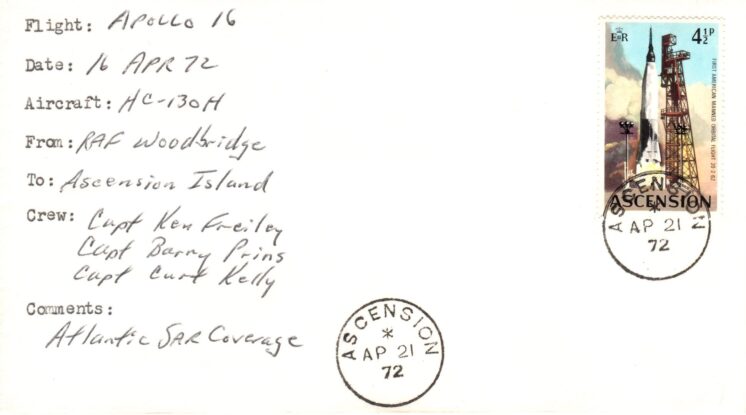 Flight: Apollo 16
Date: 16 APR 72
Aircraft: HC-130H
From: RAF Woodbridge
To: Ascension Island
Crew: Capt Ken Freiley
Capt Barry Prins
Capt Curt Kelly
Comments:
Atlantic SAR Coverage
E R 4½P
FIRST AMERICAN MANNED ORBITAL FLIGHT 20 2 62
ASCENSION
ASCENSION
*
AP 21
72
ASCENSION
*
AP 21
72